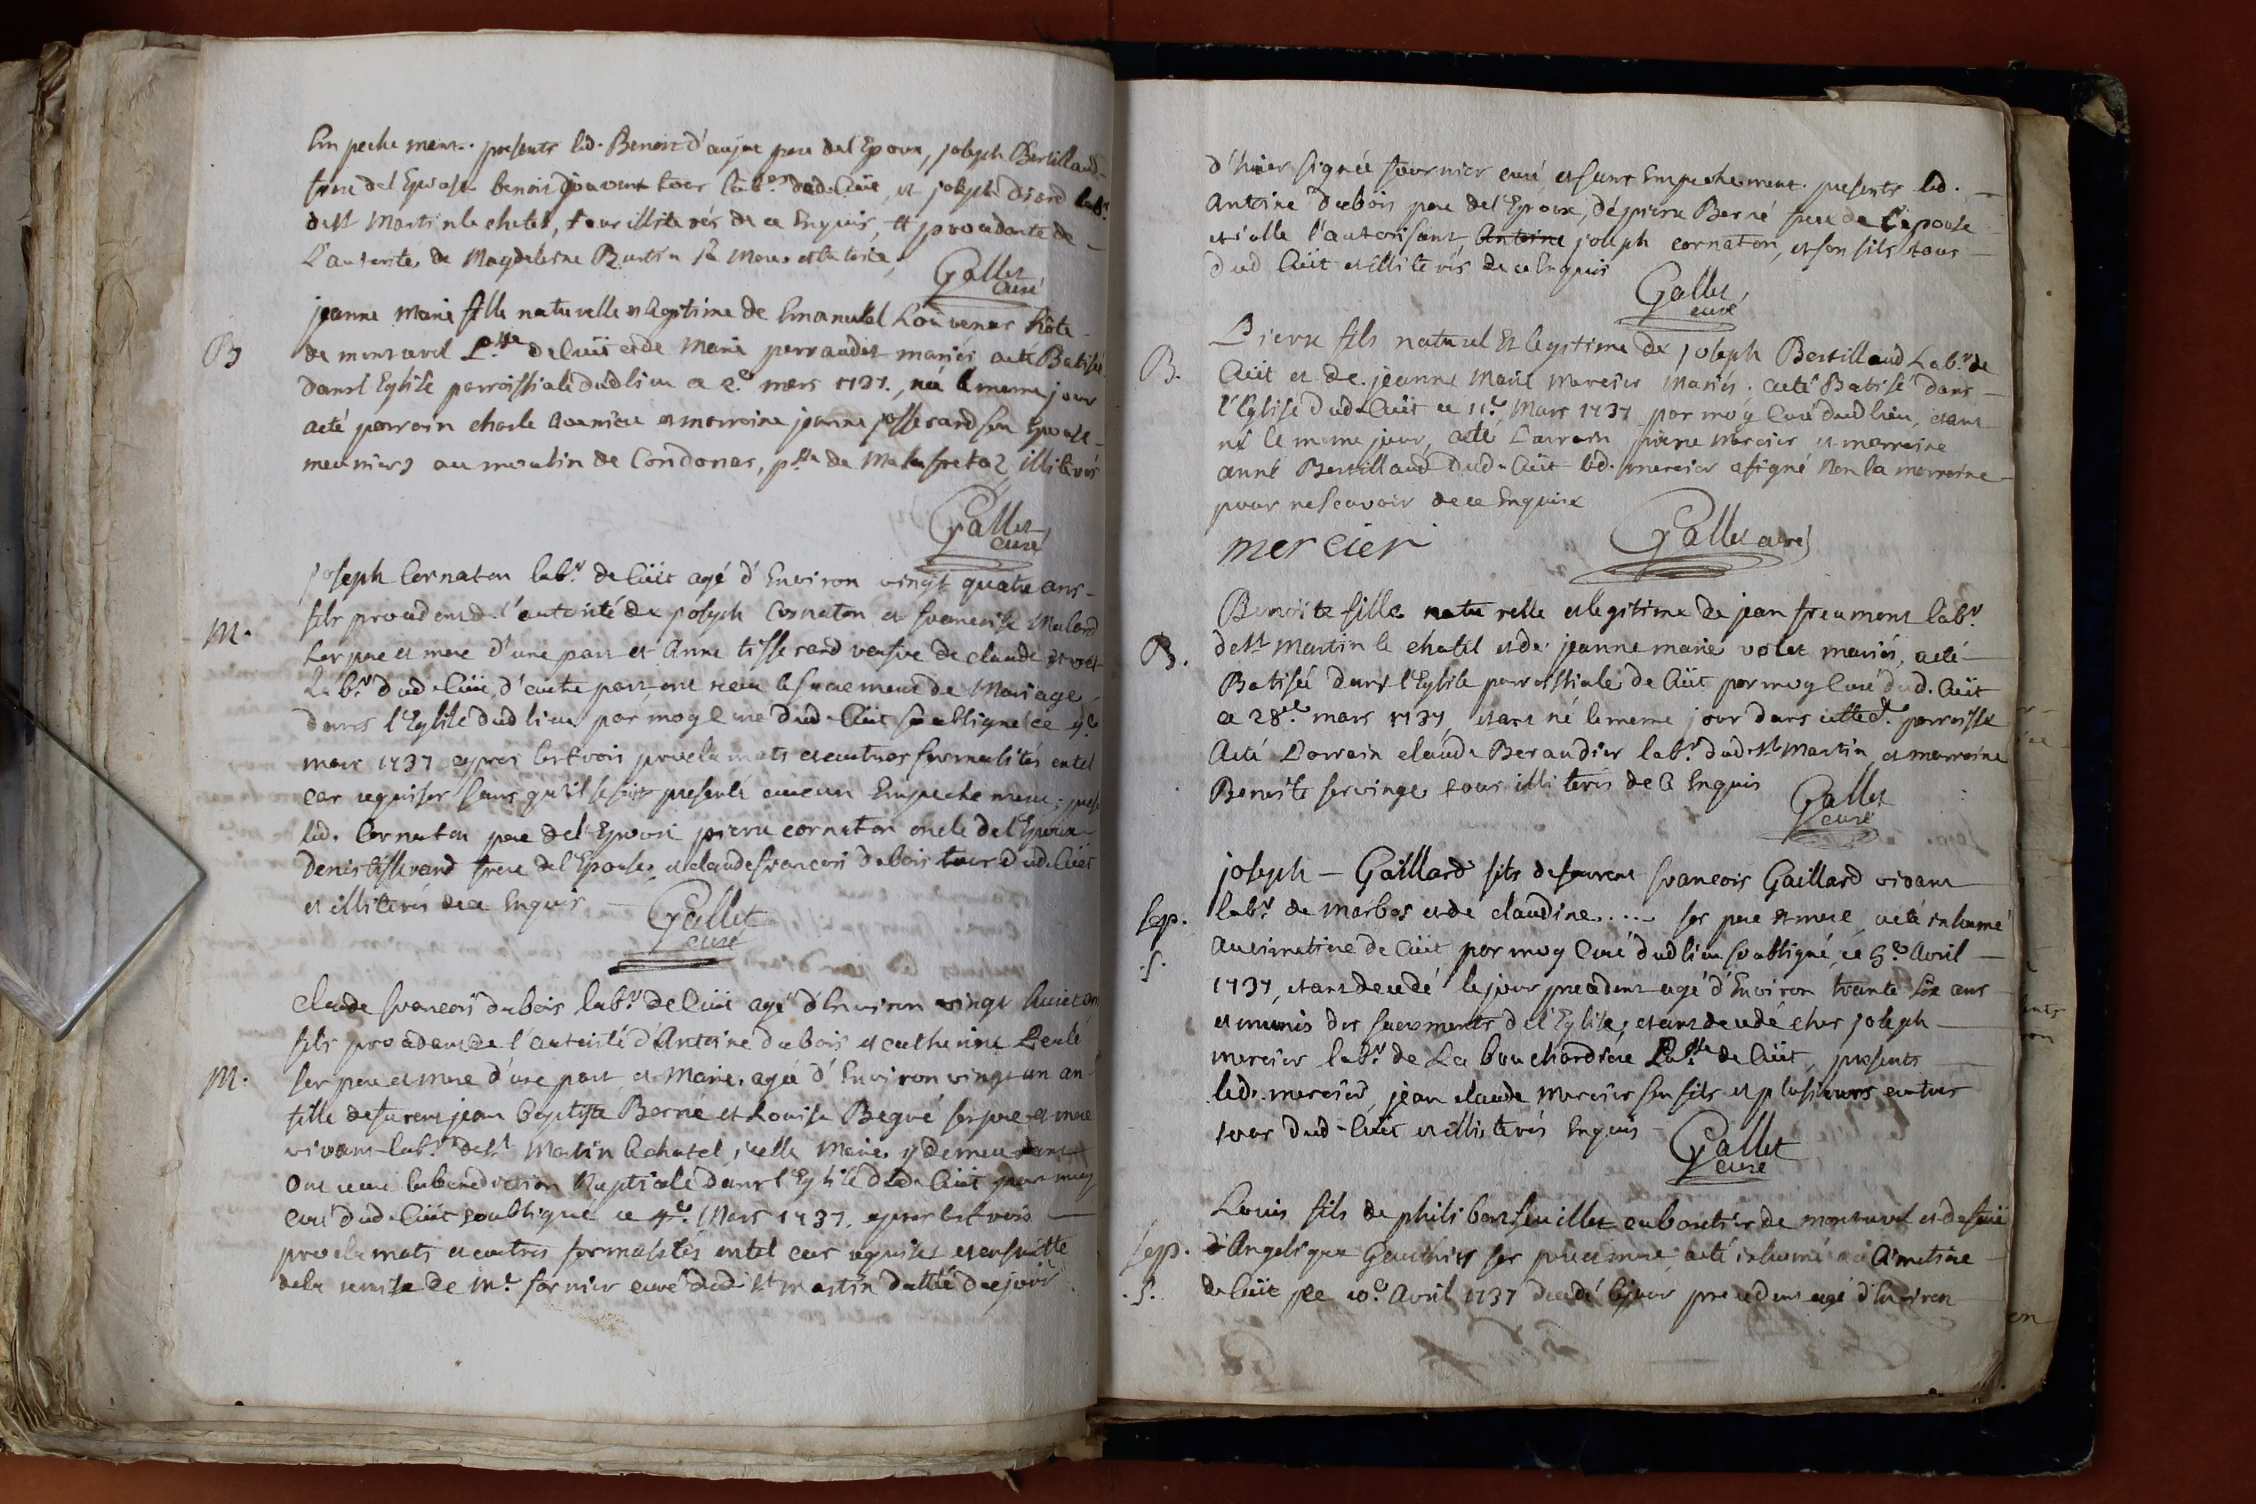 Empechement. presents led. Benoit d'aujat pere del Epoux, joseph Bertilland
frere del Epouse benoit jouvent tous lab.rs dud. Cüit, et joseph disard lab.r
de st Martin le chatel, tous illiterés de ce Enquis, # procedante de
L'autorité de Magdeleine Burtin sa Mere et tutrice,
Gallet
curé
B
jeanne Marie fille naturelle et legitime de Emanuel Louvenar hôte
de montrevel P.sse de Cuit et de Marie perraudet mariés acté Batisée
dans l'Eglise parroissiale dud lieu ce 2.e mars 1737., née le meme jour
acté parrain charle meunier et marraine jeanne josserand son Epouse
meuniers au moulin de Condonas, p.sse de Malafretaz illiterés
Gallet
curé
M.
joseph Cornaton lab.r de Cüit agé d'Environ vingt quatre ans
fils procedent de l'autorité de joseph Cornaton et francoise Maland
ses pere et mere d'une part et Anne tisserand veufve de claude
lab.r dud. Cüit, d'autre part, ont receu le sacrement de Mariage
dans l'Eglise dud lieu par moy Curé dud. Cüit soubsigné ce 4.e
mars 1737 apres les trois proclamats et autres formalités en tel
cas requises sans qu'il se soit presenté aucun Empechement; presents
led. Cornaton pere del Epoux pierre cornaton oncle del Epoux
Denis tisserand frere del Epouse, et claude francois dubois tous dud. Cüit
et illiterés de ce Enquis
Gallet
curé
M.
claude francois dubois lab.r de Cüit agé d'Environ vingt huict ans
fils procedant de l'autorité d'Antoine dubois et catherine
ses pere et mere d'une part et Marie, agée d'Environ vingt un an
fille de furent jean baptiste Berné et Louise Begué ses pere et mere
vivans lab.rs de st Martin le chatel, icelle Marie y demeurant
Ont receu la benediction Nuptiale dans l'Eglise dud. Cüit par moy
Curé dud. Cüit soubsigné ce 4.e Mars 1737. apres les trois
proclamats et autres formalités en tel cas requises et ensuitte
de la remise de Mr fornier curé dud. st martin dattée du jour
d'hüer signée fournier curé, et sans Empechement. presents led.
Antoine dubois pere del Epoux, de pierre Berné frere de L'epouse
et icelle l'autorisant, Antoine joseph cornaton, et son fils tous
dud Cüit et illiterés de ce Enquis
Gallet
curé
B.
Pierre fils naturel Et legitime de joseph Bertilland Lab.r de
Cüit et de jeanne Marie Mercier Mariés. acté Batisé dans
l'Eglise dud. Cüit ce 11.e Mars 1737 par moy Curé dud lieu, etant
né le meme jour, acté Parrain pierre mercier et marraine
anne Bertilland dud. Cüit led. mercier a signé Non la marraine
pour ne scavoir de ce Enquise
mercier
Gallet curé
B.
Benoite fille naturelle et legitime de jean freament lab.r
de st Martin le chatel et de jeanne marie volet mariés, acté
Batisée dans l'Eglise parroissiale de Cüit par moy Curé dud. Cüit
ce 28.e mars 1737, etant né le meme jour dans cette d.e parroisse
Acté Parrain claude Beraudier lab.r dud. st Martin, et marraine
Benoite servinge tous illiterés de ce Enquis
Gallet
curé
Sep.
.S.
joseph - Gaillard fils de furent francois Gaillard vivant
lab.r de Marbos et de claudine ..... ses pere et mere, acté inhumé
au cimetiere de Cüit par moy Curé dud lieu soubsigné, ce 5.e Avril
1737, etant decedé le jour precedent agé d'Environ trante six ans
et munis des sacrements de l'Eglise, etant decedé ches joseph
mercier lab.r de La bouchardiere P.sse de Cüit, presents
led. mercier, jean claude Mercier son fils et plusieurs autres
tous dud. Cüit et illiterés Enquis
Gallet
curé
Sep.
.S.
Louis fils de philibert feuillet cabaretier de montrevel et de
d'Angelique Gauthier ses pere et mere, acté inhumé au Cimetiere
de Cüit ce 10.e Avril 1737 decedé le jour precedent agé d'Environ